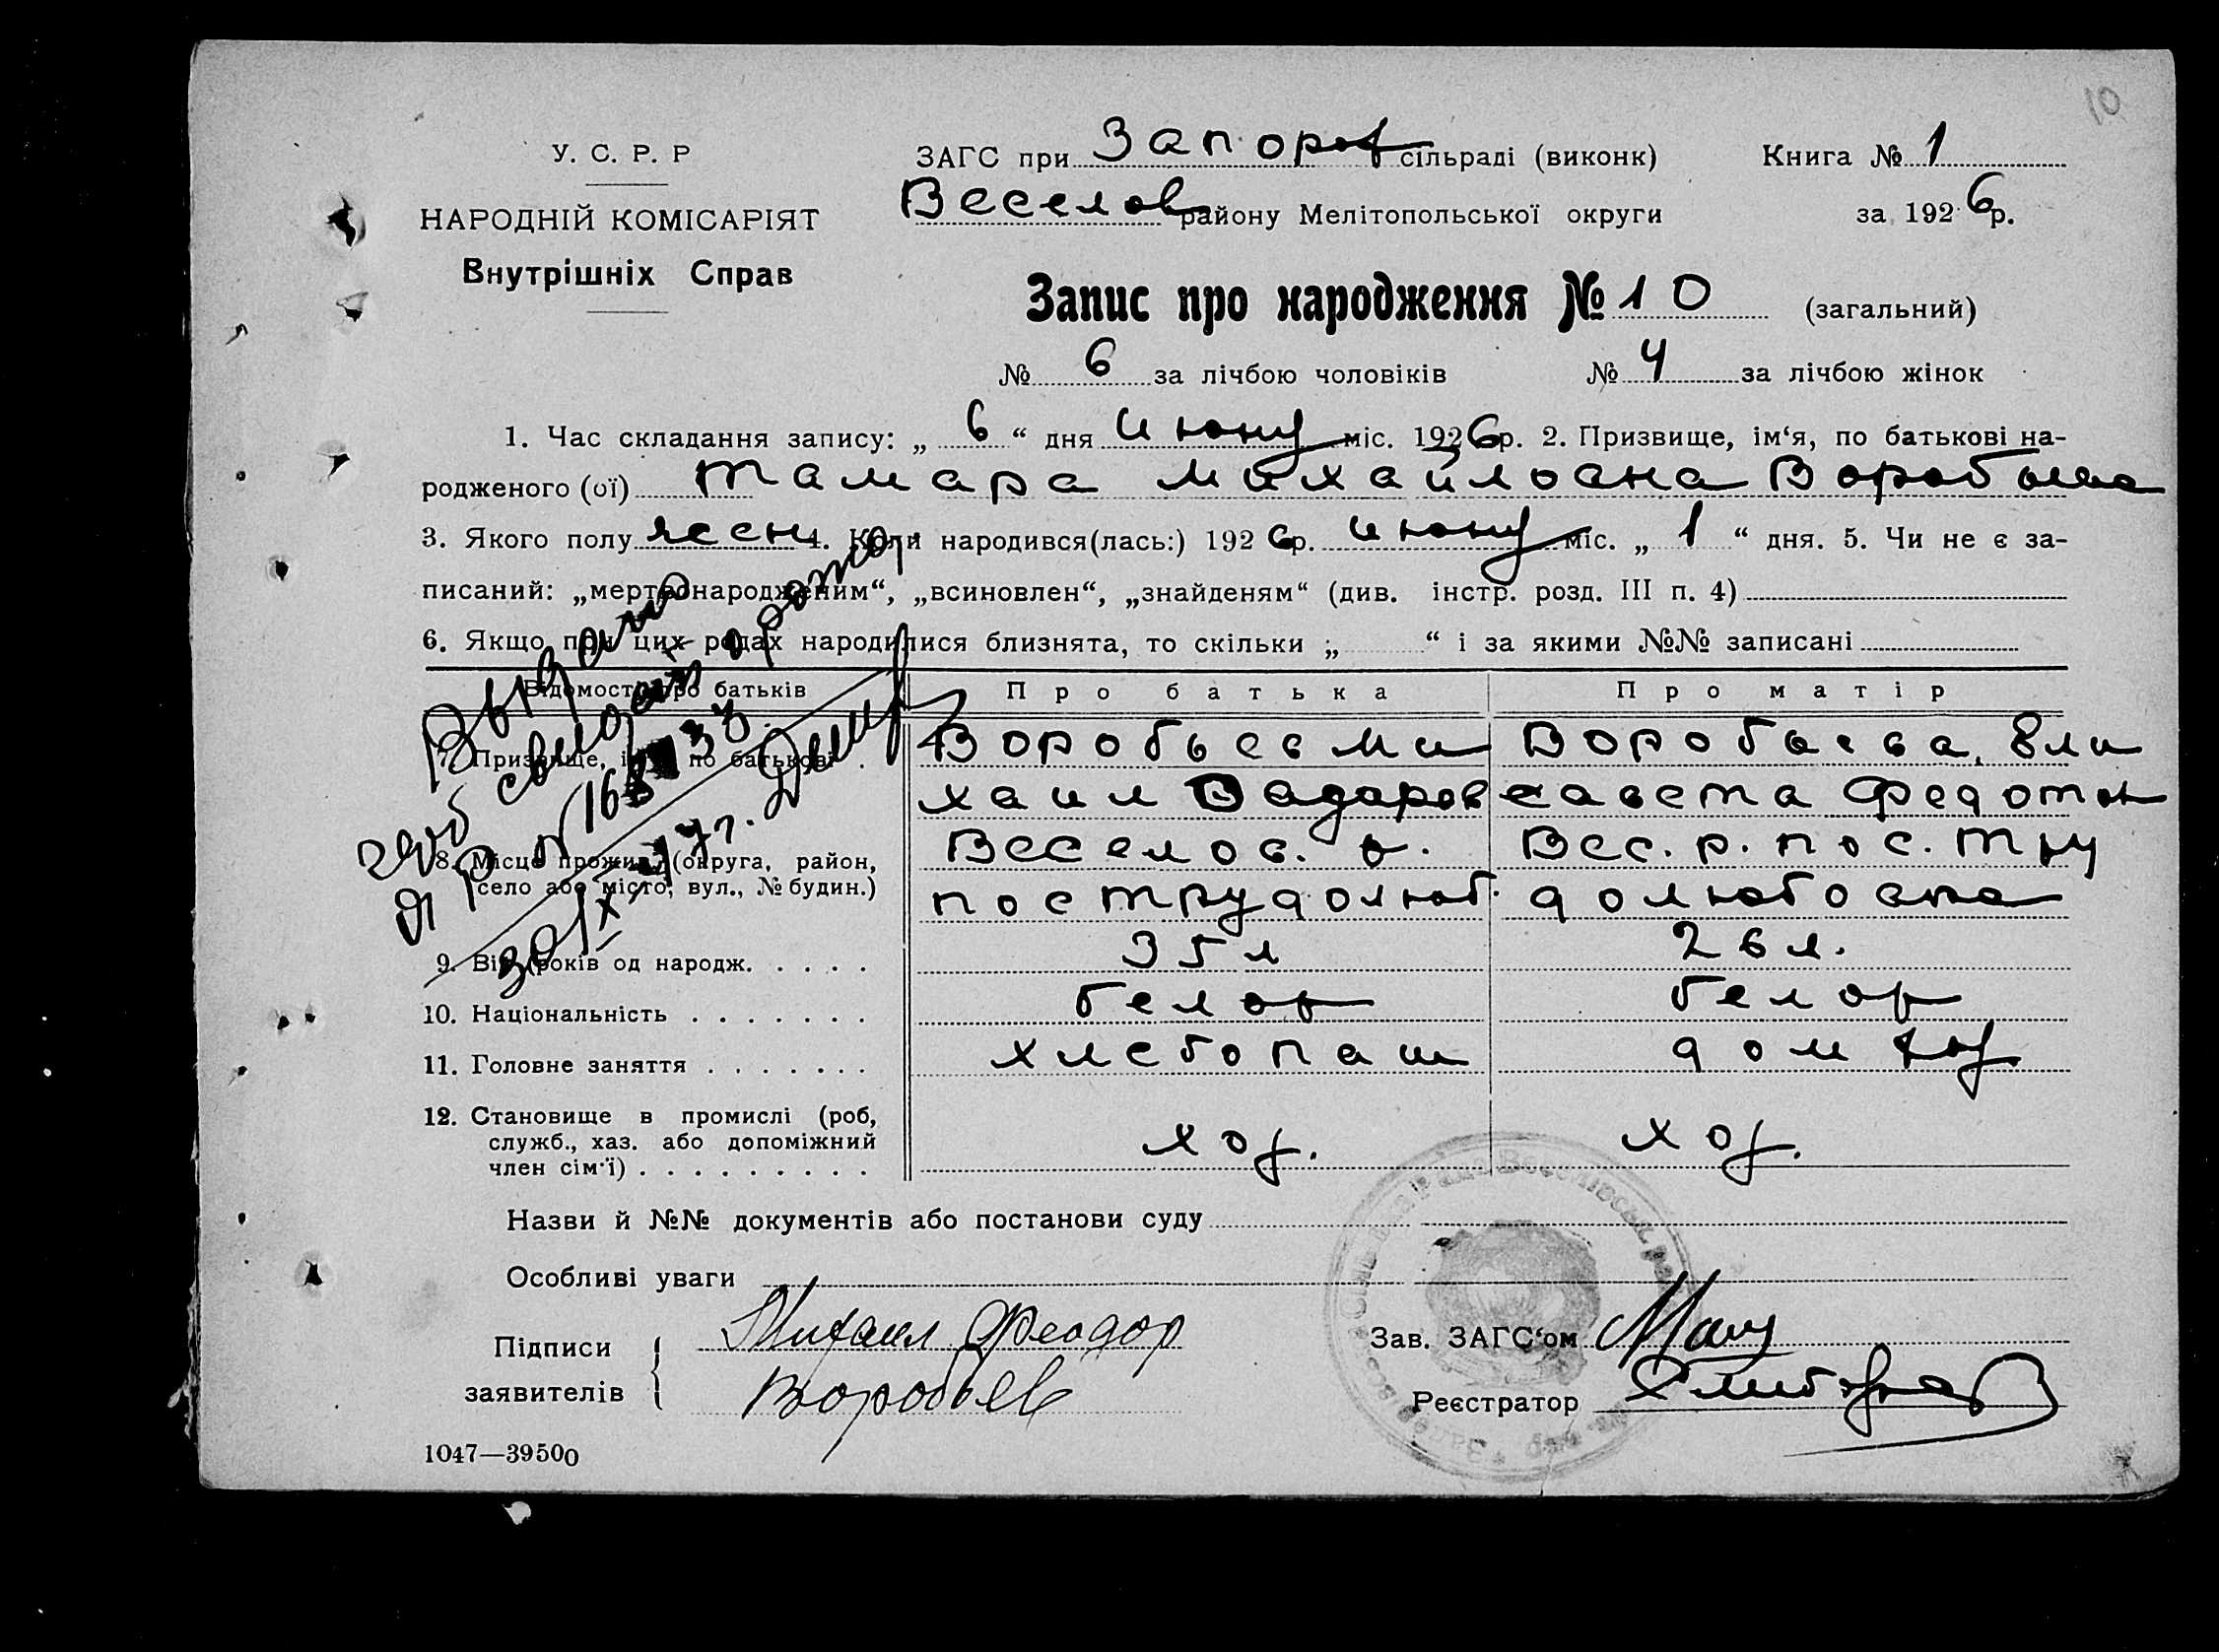 10
У. С. Р. Р
НАРОДНІЙ КОМІСАРІЯТ
Внутрішніх Справ
ЗАГС при Запорож сільраді (виконк) Книга № 1
Веселов району Мелітопольської округи за 1926р.
Запис про народження № 10 (загальний)
№ 6 за лічбою чоловіків № 4 за лічбою жінок
1. Час складання запису: „ 6 “ дня июня міс. 1926р. 2. Призвище, ім‘я, по батькові на-
родженого (ої) Тамара Михайловна Воробьева
3. Якого полу женс 4. Коли народився(лась:) 1926р. июня міс. „ 1 “ дня. 5. Чи не є за-
писаний: „мертвонародженим“, „всиновлен“, „знайденям“ (див. інстр. розд. III п. 4)
6. Якщо при цих родах народилися близнята, то скільки „ “ і за якими №№ записані
Відомости про батьків Про батька Про матір
7. Призвище, ім‘я, по батькові . Воробьев Ми Воробьева, Ели
хаил савета Федотов
8. Місце прожив. (округа, район, Веселов. р. Вес. р. пос. Тру
село або місто, вул., № будин.) пос Трудолюб. долюбовка
9. Вік (років од народж. . . . . 35 л 26 л.
10. Національність . . . . . . . белор белор
11. Головне заняття . . . . . . . хлебопаш дом хоз
12. Становище в промислі (роб,
служб., хаз. або допоміжний хоз. хоз.
член сім‘ї) . . . . . . . . .
Выдано
свидет о рожд.
Назви й №№ документів або постанови суду
Особливі уваги
Підписи Михаил Феодор Зав. ЗАГС‘ом
заявителів Воробьев Реєстратор
1047—39500